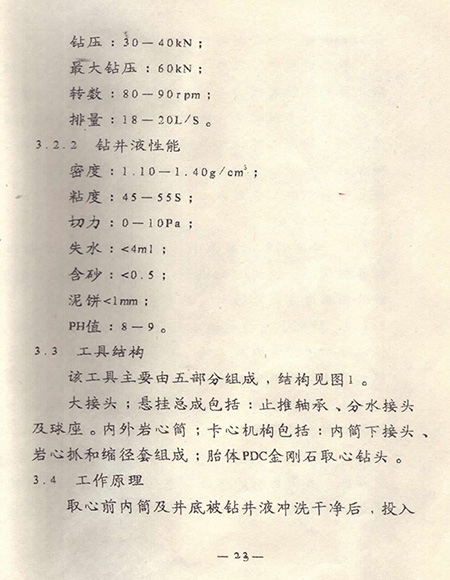 钻压：30－40kN；
最大钻压：60kN；
转数：80－90rpm；
排量：18－20L/S。
3.2.2 钻井液性能
密度：1.10－1.40g/cm³；
粘度：45－55S；
切力：0－10Pa；
失水：<4ml；
含砂：<0.5；
泥饼<1mm；
PH值：8－9。
3.3 工具结构
该工具主要由五部分组成，结构见图1。
大接头；悬挂总成包括：止推轴承、分水接头
及球座。内外岩心筒；卡心机构包括：内筒下接头、
岩心抓和缩径套组成；胎体PDC金刚石取心钻头。
3.4 工作原理
取心前内筒及井底被钻井液冲洗干净后，投入
－23－